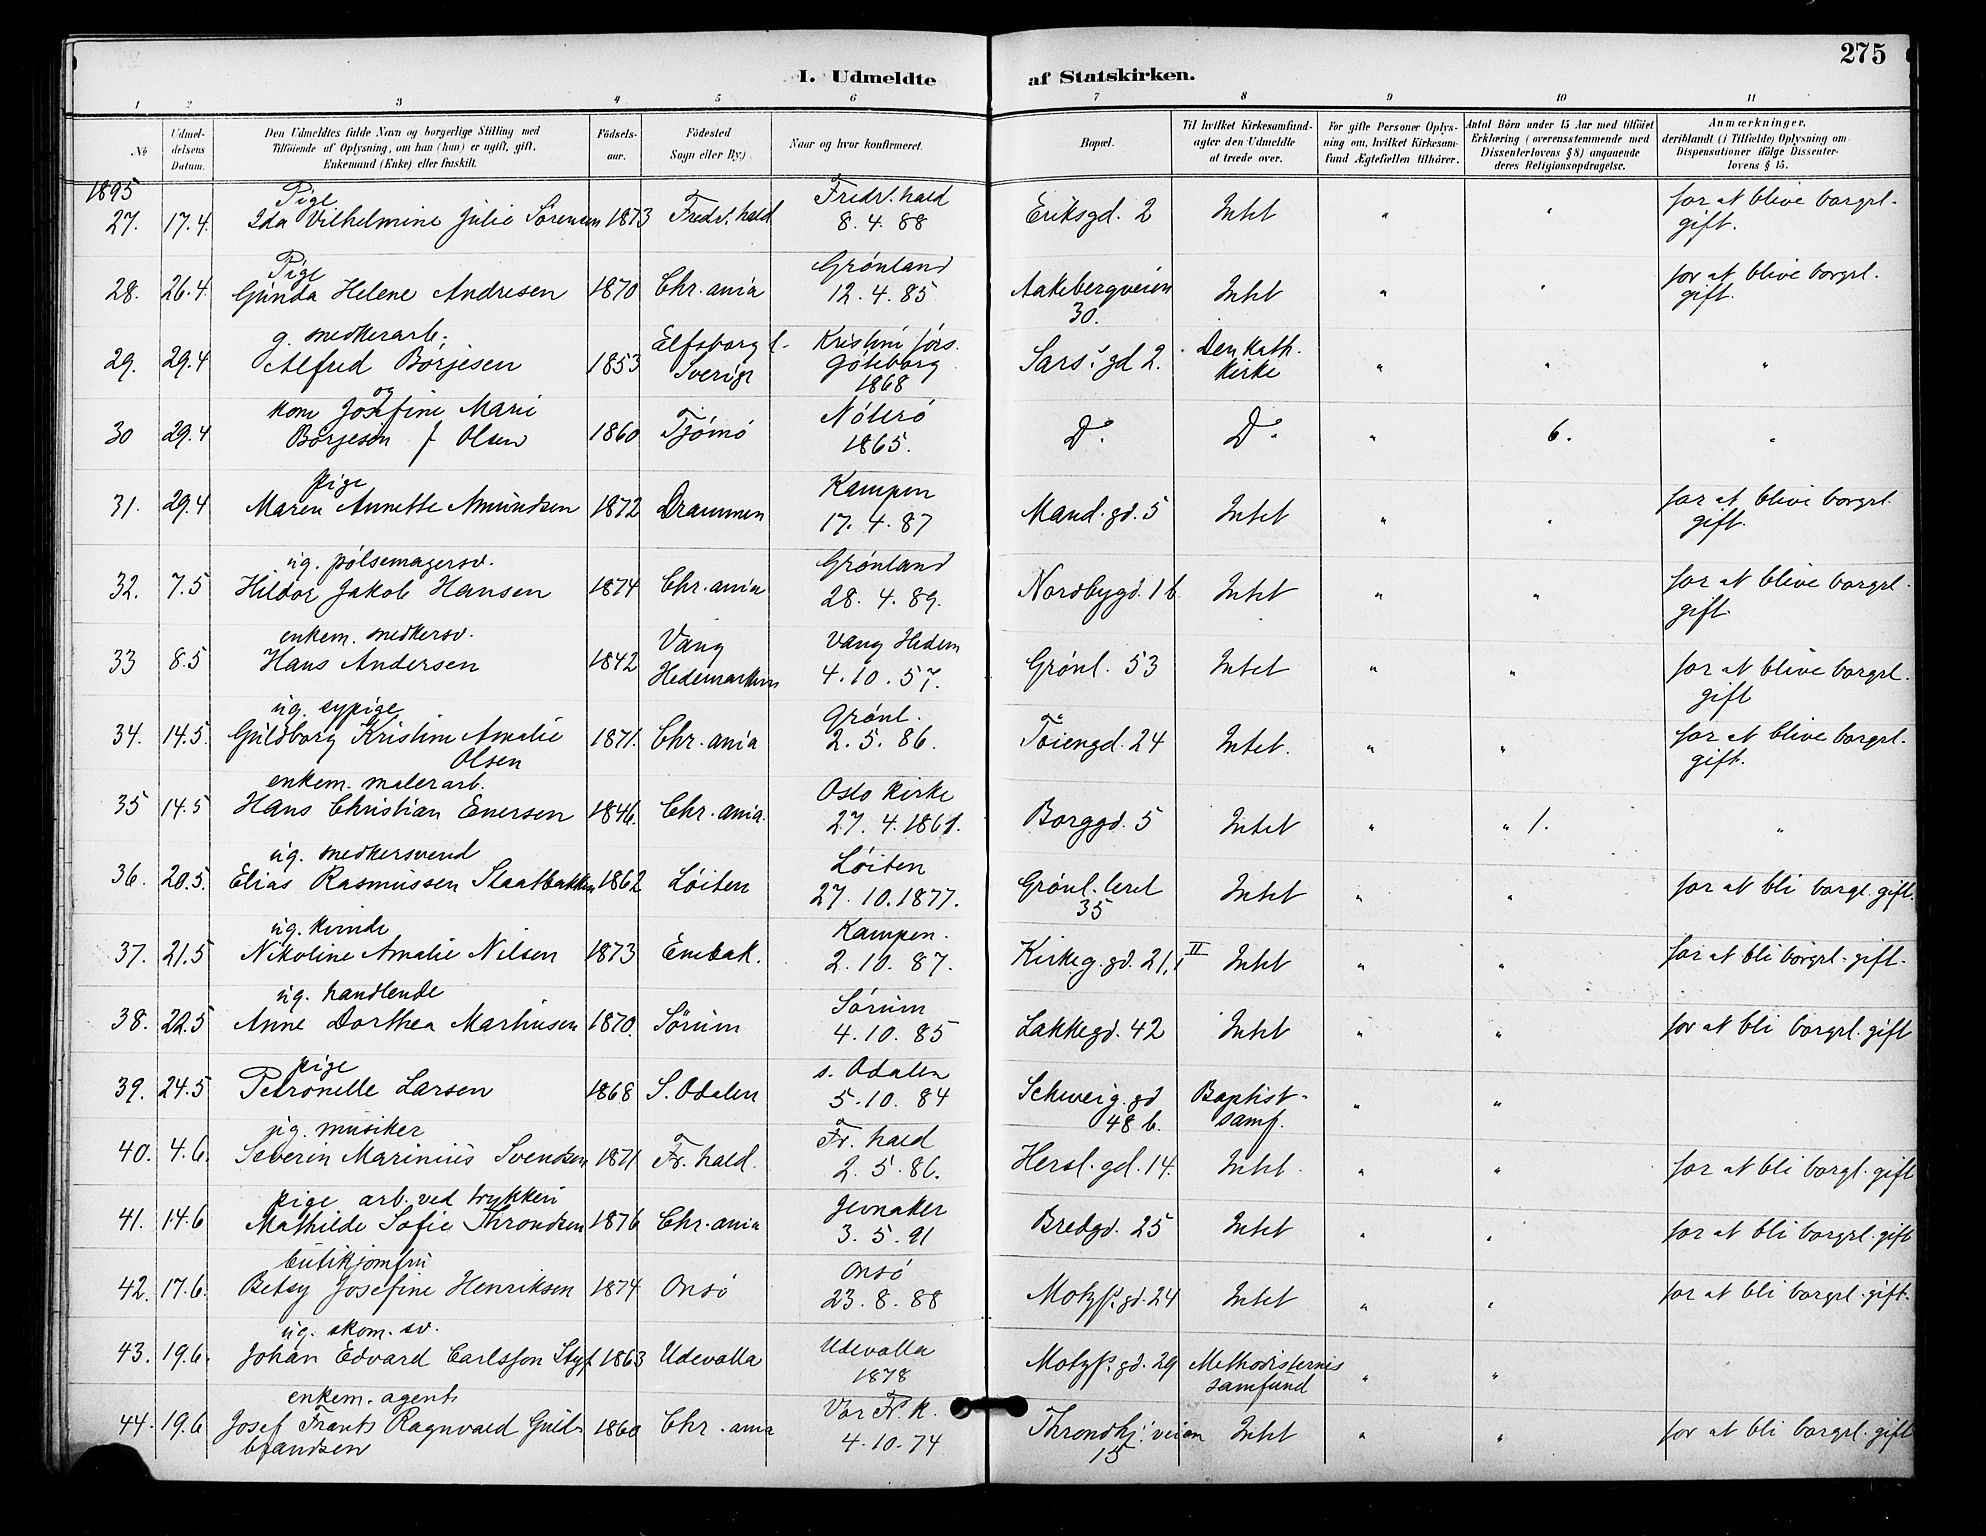 275
I. Udmeldte af Statskirken.
1 2 3 4 5 6 7 8 9 10 11
No
Udmel-
delsens
Datum.
Den Udmeldtes fulde Navn og borgerlige Stilling med
Tilföiende af Oplysning, om han (hun) er ugift, gift,
Enkemand (Enke) eller fraskilt.
Födsels-
aar.
Födested
Sogn eller By.)
Naar og hvor konfirmeret.
Bopæl.
Til hvilket Kirkesamfund-
agter den Udmeldte
at træde over.
For gifte Personer Oplys-
ning om, hvilket Kirkesam-
fund Ægtefællen tilhörer.
Antal Börn under 15 Aar med tilföiet
Erklæring (overensstemmende med
Dissenterlovens § 8) angaaende
deres Religionsopdragelse.
Anmærkninger,
deriblandt (i Tilfælde) Oplysning om
Dispensationer ifölge Dissenter-
lovens § 15.
1895 Pige Fredr.hald for at blive borgrl.
27. 17.4. Ida Vilhelmine Julie Sörensen 1873 Fredr.hald 8.4.88 Eriksgd. 2 Intet " " gift.
Pige Grönland for at blive borgrl.
28. 26.4 Gunda Helene Andresen 1870 Chr.ania 12.4.85 Aakebergveien 30. Intet " " gift.
g. snedkerarb. Elfsborg l. Kristini förs. Den kath.
29. 29.4 Alfred Börjesen 1853 Sverige Göteborg 1868 Sars's gd 2. Kirke " " "
og
kone Josefine Marie Nöterö
30 29.4 Börjesen f Olsen 1860 Tjömö 1865. Do. Do. " 6. "
pige Kampen for at blive borgrl.
31. 29.4 Maren Annette Amundsen 1872 Drammen 17.4.87 Mand.gd. 5 Intet " " gift.
ug. pölsemagersv. Grönland for at blive borgrl.
32. 7.5 Hildor Jakob Hansen 1874 Chr.ania 28.4.89. Nordbygd. 1 b. Intet " " gift
enkem. snedkersv. Vang Vang Hedem for at blive borgrl.
33 8.5 Hans Andersen 1842 Hedemarken 4.10.57. Grönl. 53 Intet " " gift
ug. sypige Grönl. for at blive borgrl.
34. 14.5. Guldborg Kristine Amalie 1871. Chr.ania 2.5.86. Töiengd. 24 Intet. " " gift.
Olsen
enkem. malerarb. Oslo kirke
35 14.5 Hans Christian Enersen 1846. Chr.ania. 27.4.1861. Borggd. 5 Intet " " 1. "
ug. snedkersvend Löiten
36. 20.5. Elias Rasmussen Slaatbakken 1862 Löiten 27.10.1877. Grönl.leret 35 Intet " " for at bli borgl. gift.
ug. kvinde Kampen.
37. 21.5 Nikoline Amalie Nilsen 1873 Enebak. 2.10.87. Kirkeg.gd. 21, II Intet " " for at bli borgrl. gift.
ug. handlende Sörum
38. 22.5 Anne Dorthea Marhusen 1870. Sörum 4.10.85 Lakkegd. 42 Intet " " for at bli borgrl. gift
pige s. Odalen
39. 24.5 Petronelle Larsen 1868 S. Odalen 5.10.84 Schweig.gd 48 b. Baptist-samf. " "
ug. musiker Fr.hald
40. 4.6. Severin Marinius Svendsen 1871 Fr.hald. 2.5.86. Hersl.gd. 14. Intet " " for at bli borgl. gift
pige arb. ved trykkeri Jevnaker
41. 14.6 Mathilde Sofie Throndsen 1876 Chr.ania 3.5.91 Bredgd. 25 Intet " " for at bli borgrl. gift
butikjomfru Onsö
42. 17.6. Betsy Josefine Henriksen 1874 Onsö 23.8.88 Motzf.gd. 24 Intet " " for at bli borgrl. gift.
ug. skom.sv. Udevalla
43. 19.6. Johan Edvard Carlsson Styf 1863 Udevalla 1878 Motzf.gd. 29 Methodisternes samfund " "
enkem. agent Vor Fr. K.
44. 19.6 Josef Frants Ragnvald Guld- 1860 Chr.ania 4.10.74 Throndhj.veien 15 Intet " " for at bli borgrl. gift
brandsen